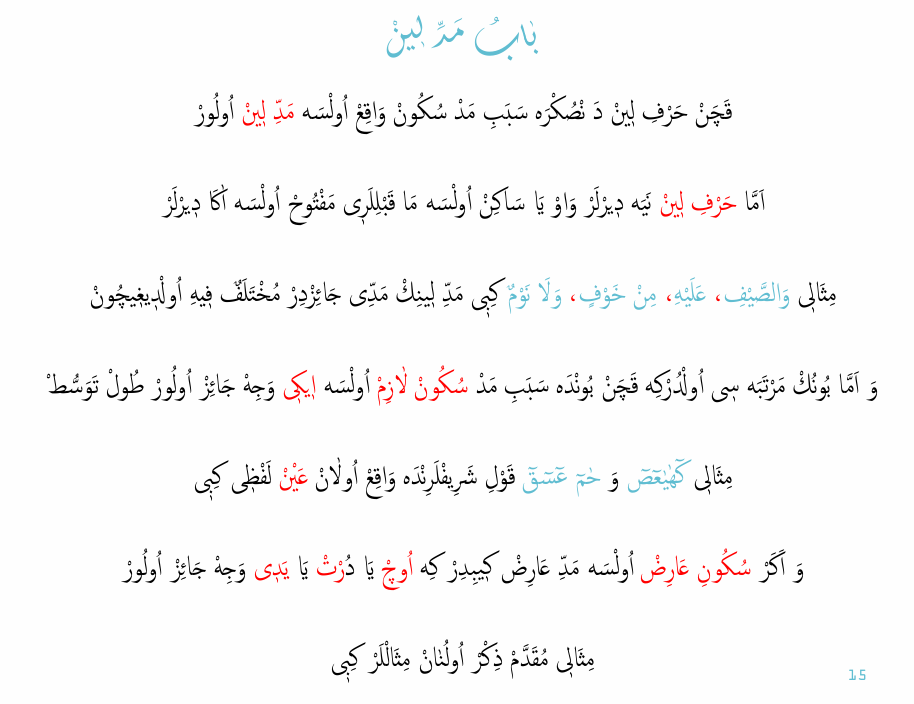 بَابُ مَدِّ لِينْ
قَچَنْ حَرْفِ لِينْ دَ نْصُكْرَه سَبَبِ مَدْ سُكُونْ وَاقِعْ اُولْسَه مَدِّ لِينْ اُولُورْ
اَمَّا حَرْفِ لِينْ نَيَه دِيرْلَرْ وَاوْ يَا سَاكِنْ اُولْسَه مَا قَبْلِلَرِى مَفْتُوحْ اُولْسَه اَكَا دِيرْلَرْ
مِثَالِى وَالصَّيْفِ، عَلَيْهِ، مِنْ خَوْفٍ، وَلَا نَوْمٌ كِبِى مَدِّ لِينِكْ مَدِّى جَائِزْدِرْ مُخْتَلَفٌ فِيهِ اُولْدِيغِيچُونْ
وَ اَمَّا بُونُكْ مَرْتَبَه سِى اُولْدُرْكِه قَچَنْ بُونْدَه سَبَبِ مَدْ سُكُونْ لَازِمْ اُولْسَه اِيكِى وَجِهْ جَائِزْ اُولُورْ طُولْ تَوَسُّطْ
مِثَالِى كٓهٰيٰعٓصٓ وَ حٰمٓ عٓسٓقٓ قَوْلِ شَرِيفْلَرِنْدَه وَاقِعْ اُولَانْ عَيْنْ لَفْظِى كِبِى
وَ اَكَرْ سُكُونِ عَارِضْ اُولْسَه مَدِّ عَارِضْ كِيبِدِرْ كِه اُوچْ يَا دُرْتْ يَا يَدِى وَجِهْ جَائِزْ اُولُورْ
مِثَالِى مُقَدَّمْ ذِكْرْ اُولُنَانْ مِثَالْلَرْ كِبِى
15